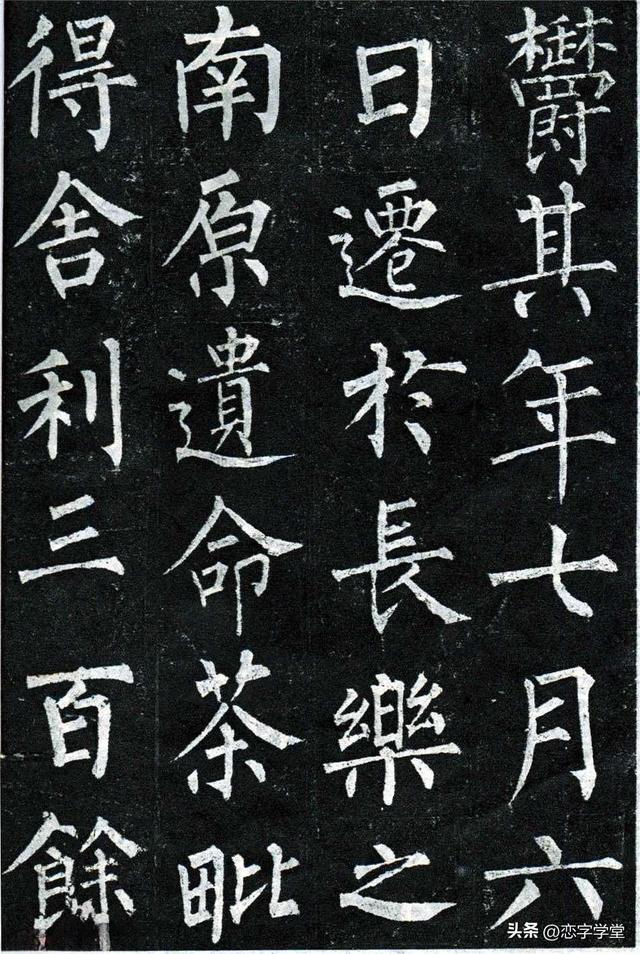 欝其年七月六
日遷於長樂之
南原遺命茶毗
得舍利三百餘
头条 @恋字学堂